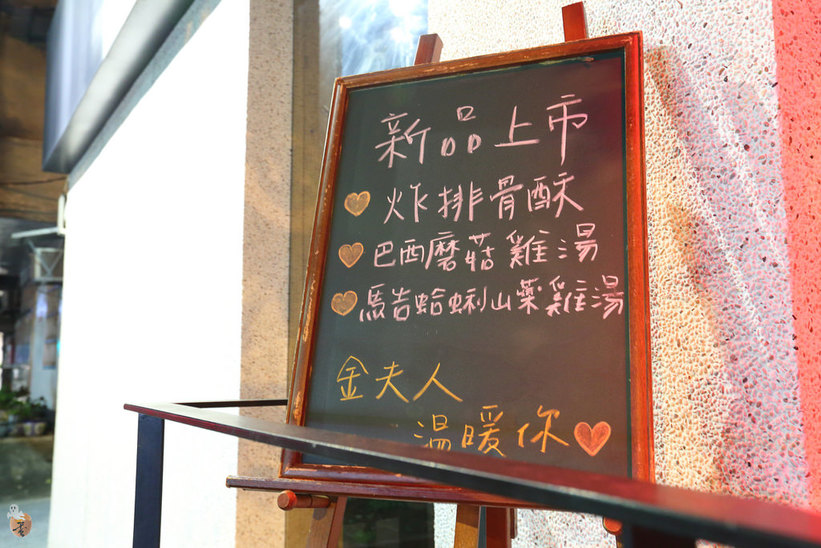 新品上市
炸排骨酥
巴西磨菇雞湯
馬吉蛤蜊山藥雞湯
金夫人
溫暖你